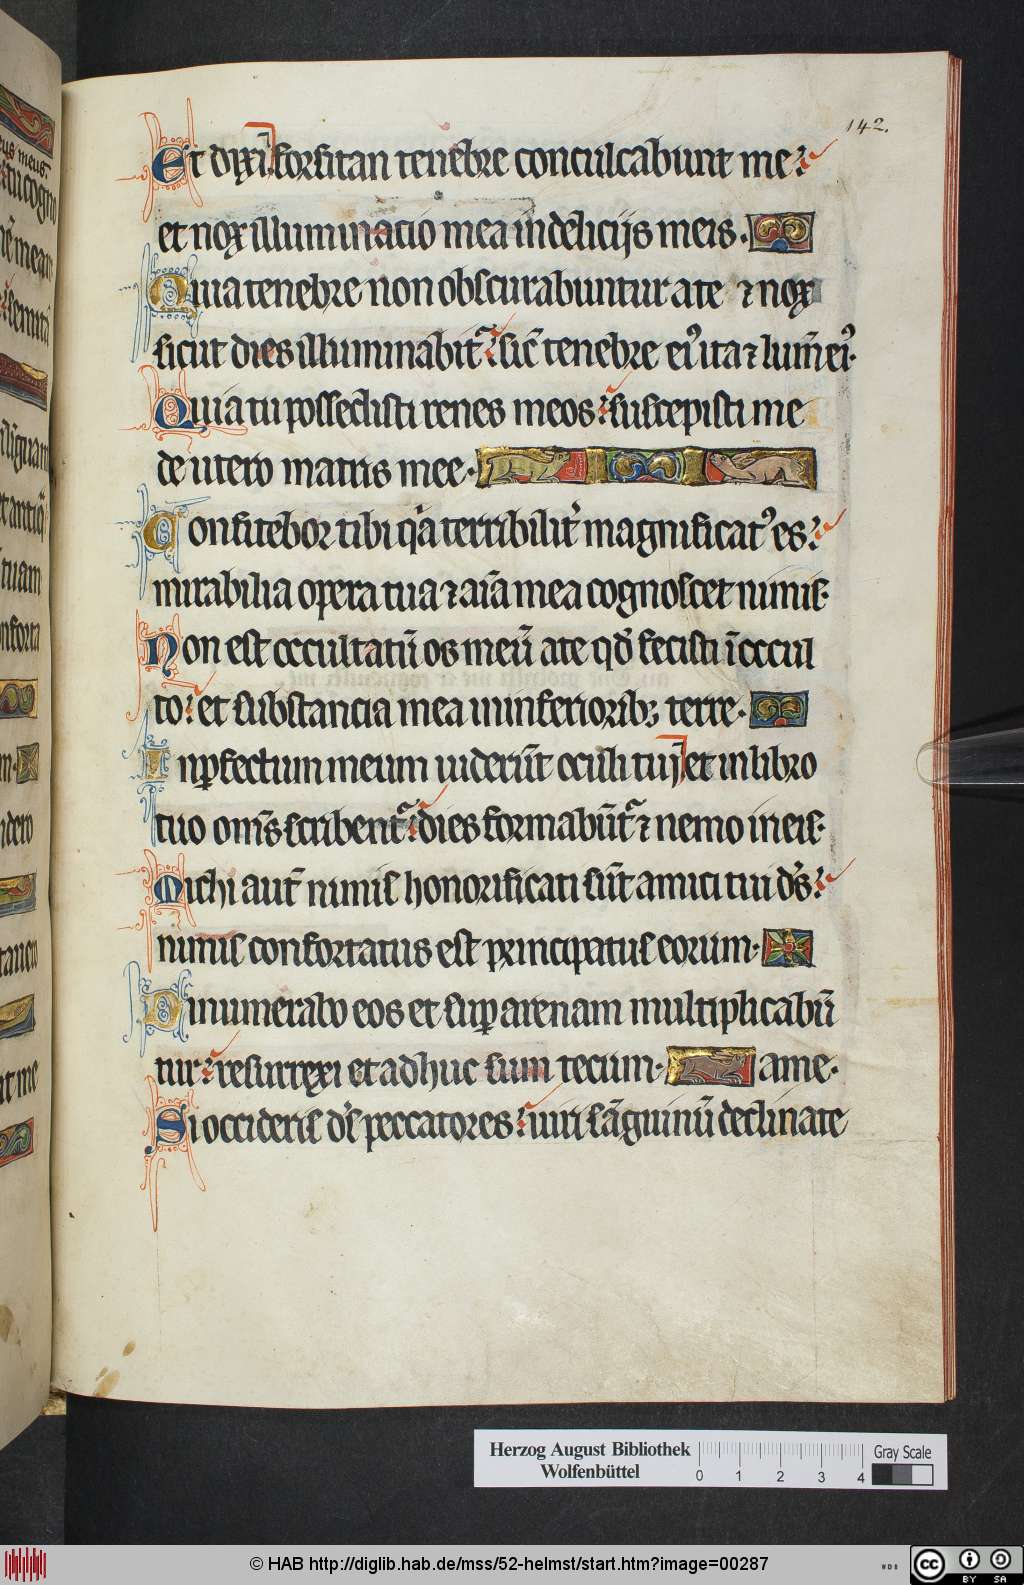 142.
Et dixi forsitan tenebre conculcabunt me
et nox illuminatio mea in deliciis meis.
Quia tenebre non obscurabuntur a te ⁊ nox
sicut dies illuminabit᷑ sic̄ tenebre eiꝰ ita ⁊ lum̄ eiꝰ.
Quia tu possedisti renes meos suscepisti me
de utero matris mee.
Confitebor tibi q̄a terribilit̄ magnificatꝰ es
mirabilia opera tua ⁊ aīa mea cognoscet nimis.
Non est occultatū os meū a te qd̄ fecisti ī occul
to et substantia mea in inferiorib; terre.
Inꝑfectum meum uiderūt oculi tui et in libro
tuo om̄s scribent᷑ dies formabūt᷑ ⁊ nemo in eis.
Michi aut̄ nimis honorificati sūt amici tui ds̄
nimis confortatus est principatus eorum.
Dinumerabo eos et suꝑ arenam multiplicabū
tur resurrexi et adhuc sum tecum.
Si occideris ds̄ peccatores uiri sāguinū declinate
a me.
Herzog August Bibliothek
Wolfenbüttel
0 1 2 3 4
Gray Scale
© HAB http://diglib.hab.de/mss/52-helmst/start.htm?image=00287
WDB
cc BY SA